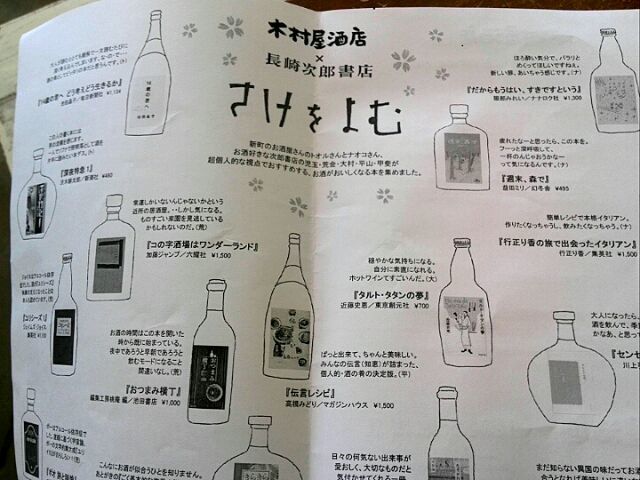 木村屋酒店
×
長崎次郎書店
さけをよむ
新町のお酒屋さんのトオルさんとナオコさん、
お酒好きな次郎書店の児玉・荒金・大村・平山・甲斐が
超個人的な視点でおすすめする、お酒がおいしくなる本を集めました。
ほろ酔い気分で、パラリと
めくってほしいですねぇ。
新しい豚、あいちゃう感じです。(ナ)
『だからもうはい、すきですという』
服部みれい/ナナロク社 ¥1,300
疲れたなーと思ったら、この本を。
フーッと深呼吸して、
一杯のんじゃおうかなー
って気になるんです。(ナ)
『週末、森で』
益田ミリ/幻冬舎 ¥495
簡単レシピで本格イタリアン。
作りたくなっちゃうし、飲みたくなっちゃう。(ナ)
『行正り香の旅で出会ったイタリアン』
行正り香/集英社 ¥1,500
『深夜特急1』
沢木耕太郎/新潮社 ¥460
常連しかいないんじゃないかという
近所の居酒屋、・・しかし気になる。
ものすごい楽園を見逃している
かもしれないのだ。(荒)
『コの字酒場はワンダーランド』
加藤ジャンプ/六耀社 ¥1,500
穏やかな気持ちになる。
自分に素直になれる。
ホットワインてすごいんだ。(大)
『タルト・タタンの夢』
近藤史恵/東京創元社 ¥700
お酒の時間はこの本を開いた
時から既に始まっている。
夜中であろうと早朝であろうと
飲むモードになること
間違いなし。(荒)
『おつまみ横丁』
編集工房桃庵 編/池田書店 ¥1,000
ぱっと出来て、ちゃんと美味しい。
みんなの伝言(知恵)が詰まった、
個人的・酒の肴の決定版。(平)
『伝言レシピ』
高橋みどり/マガジンハウス ¥1,500
『ユリシーズ1』
こんなにお酒が似合うひとを知りません。
日々の何気ない出来事が
愛おしく、大切なものだと
気付かせてくれる一冊
大人になったら、
酒を飲んで、季
かなあ、と思って
『センセ
川上
まだ知らない異国の味だってお酒